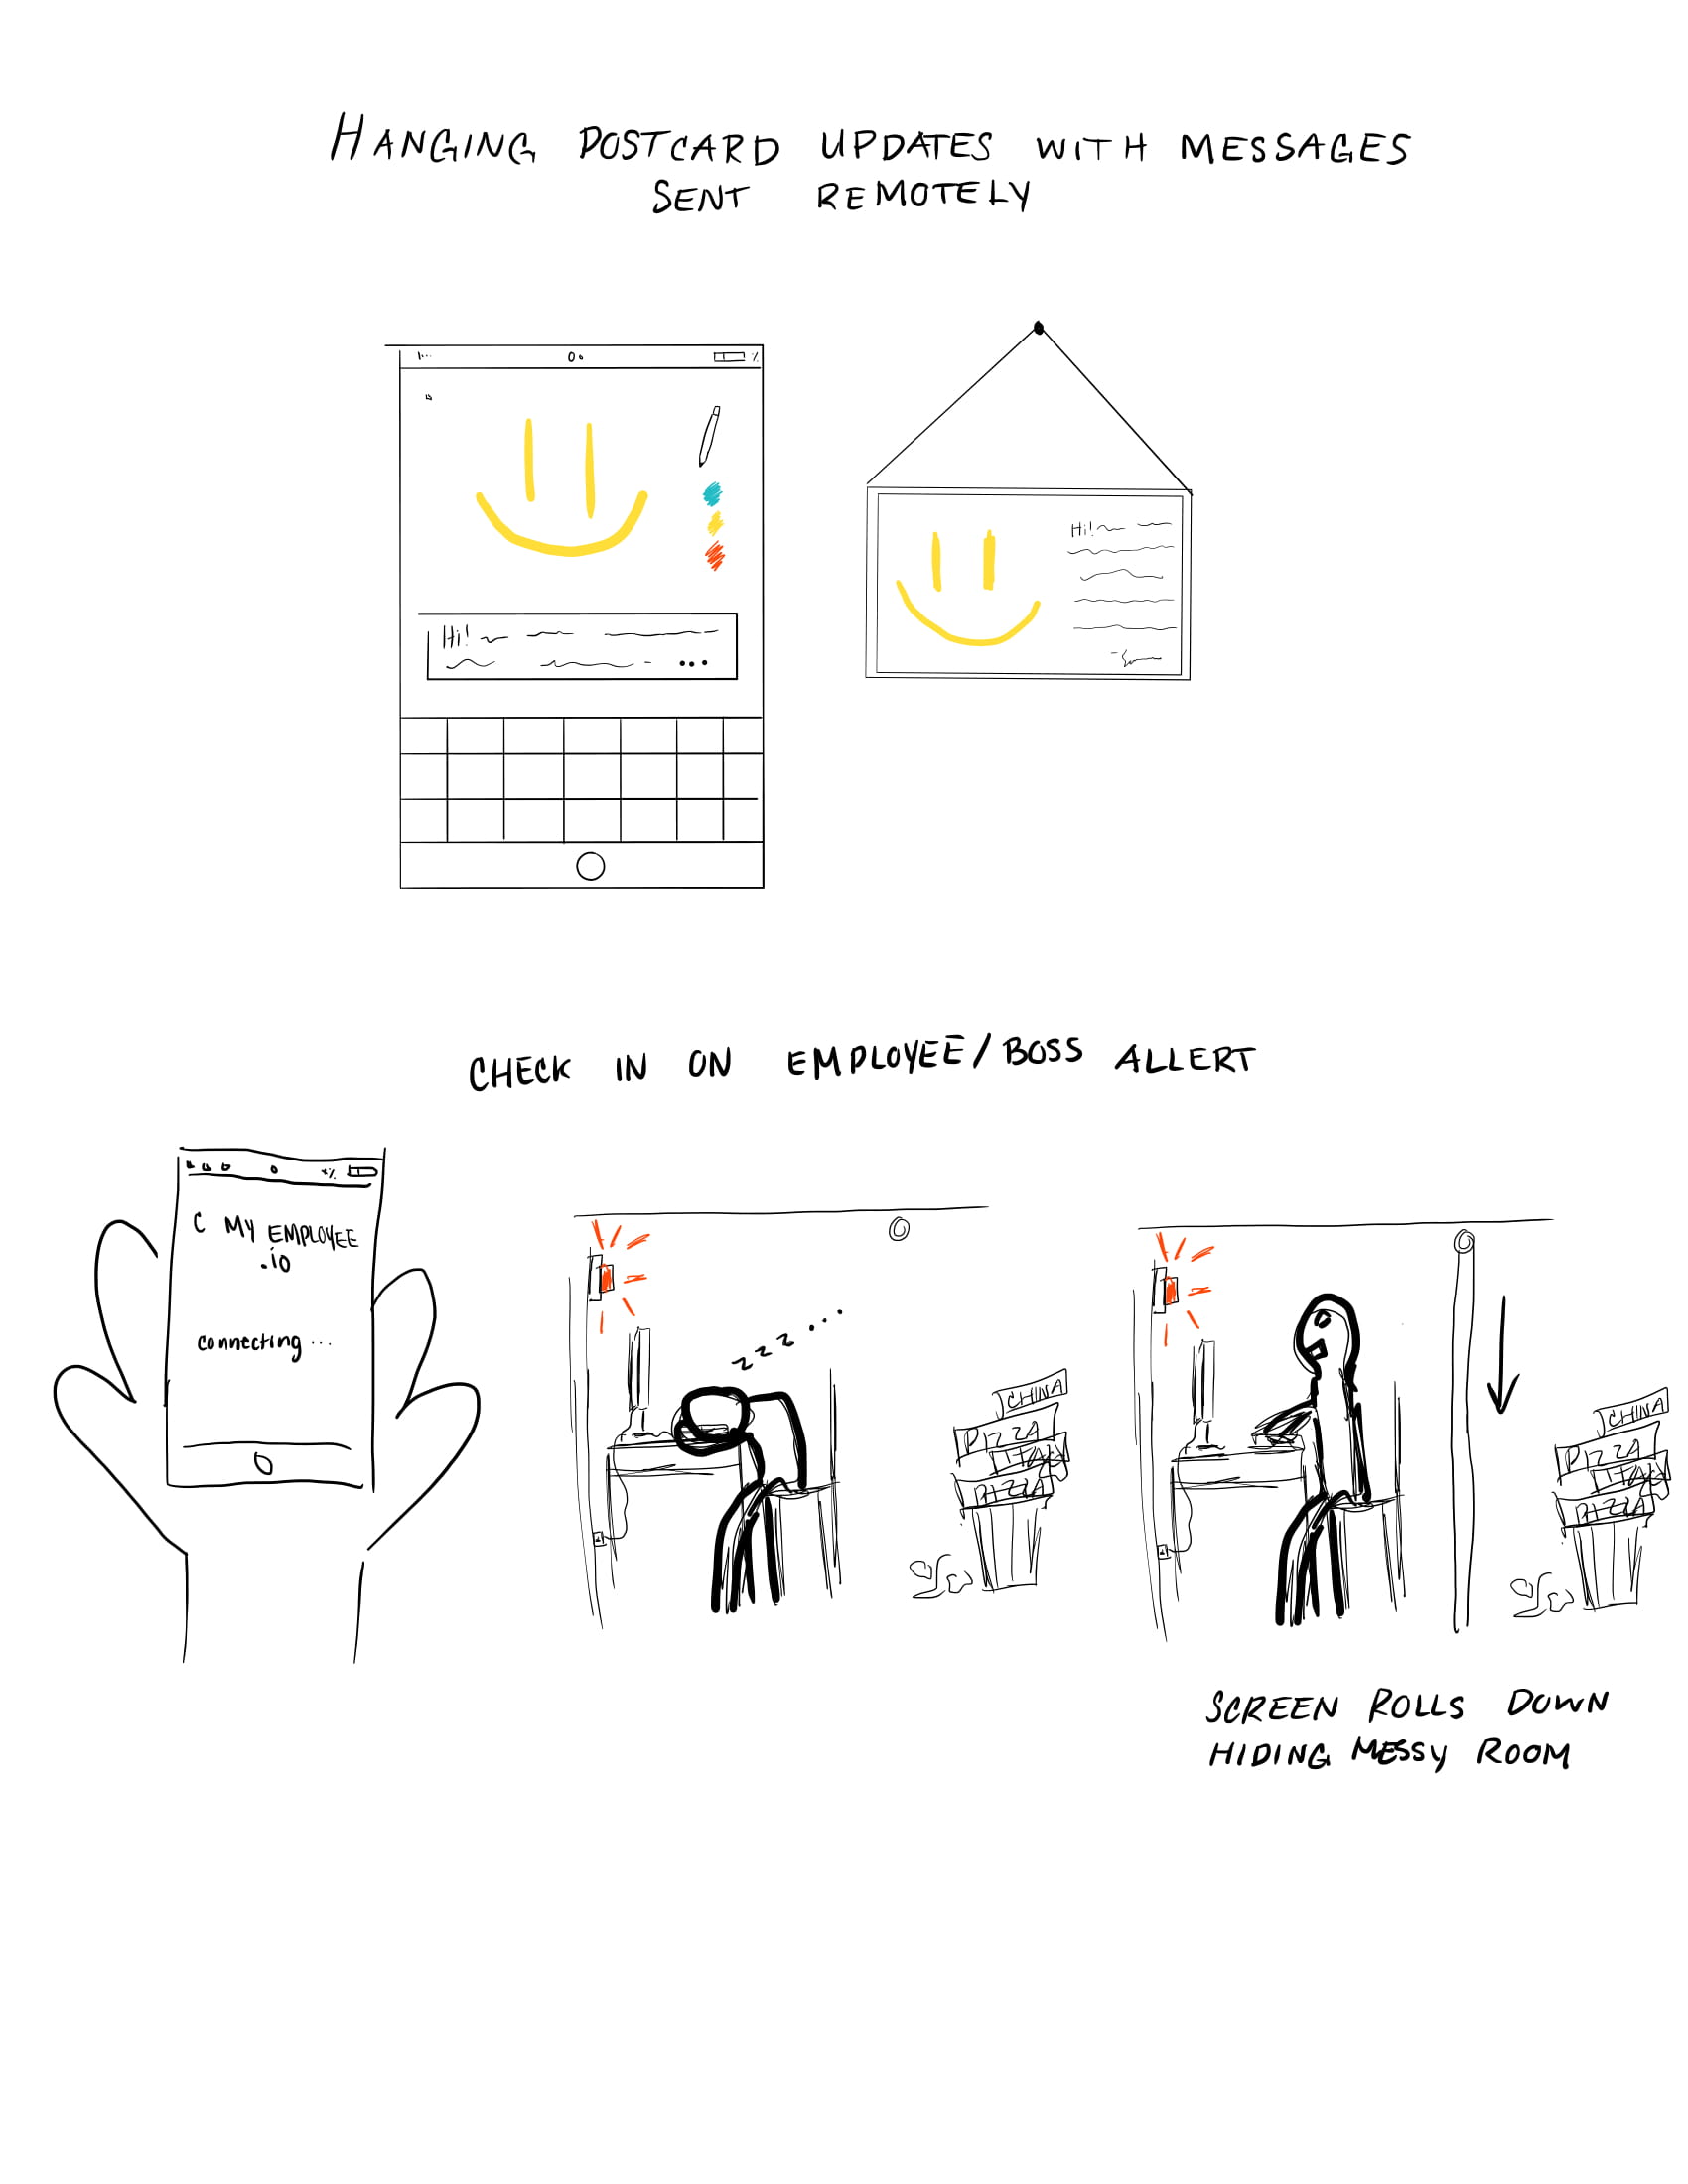 HANGING POSTCARD UPDATES WITH MESSAGES
SENT REMOTELY
Hi!
Hi!
CHECK IN ON EMPLOYEE/BOSS ALLERT
C MY EMPLOYEE
.io
connecting ...
z z z ...
CHINA
PIZZA
ITALY
PIZZA
CHINA
PIZZA
PIZZA
SCREEN ROLLS DOWN
HIDING MESSY ROOM